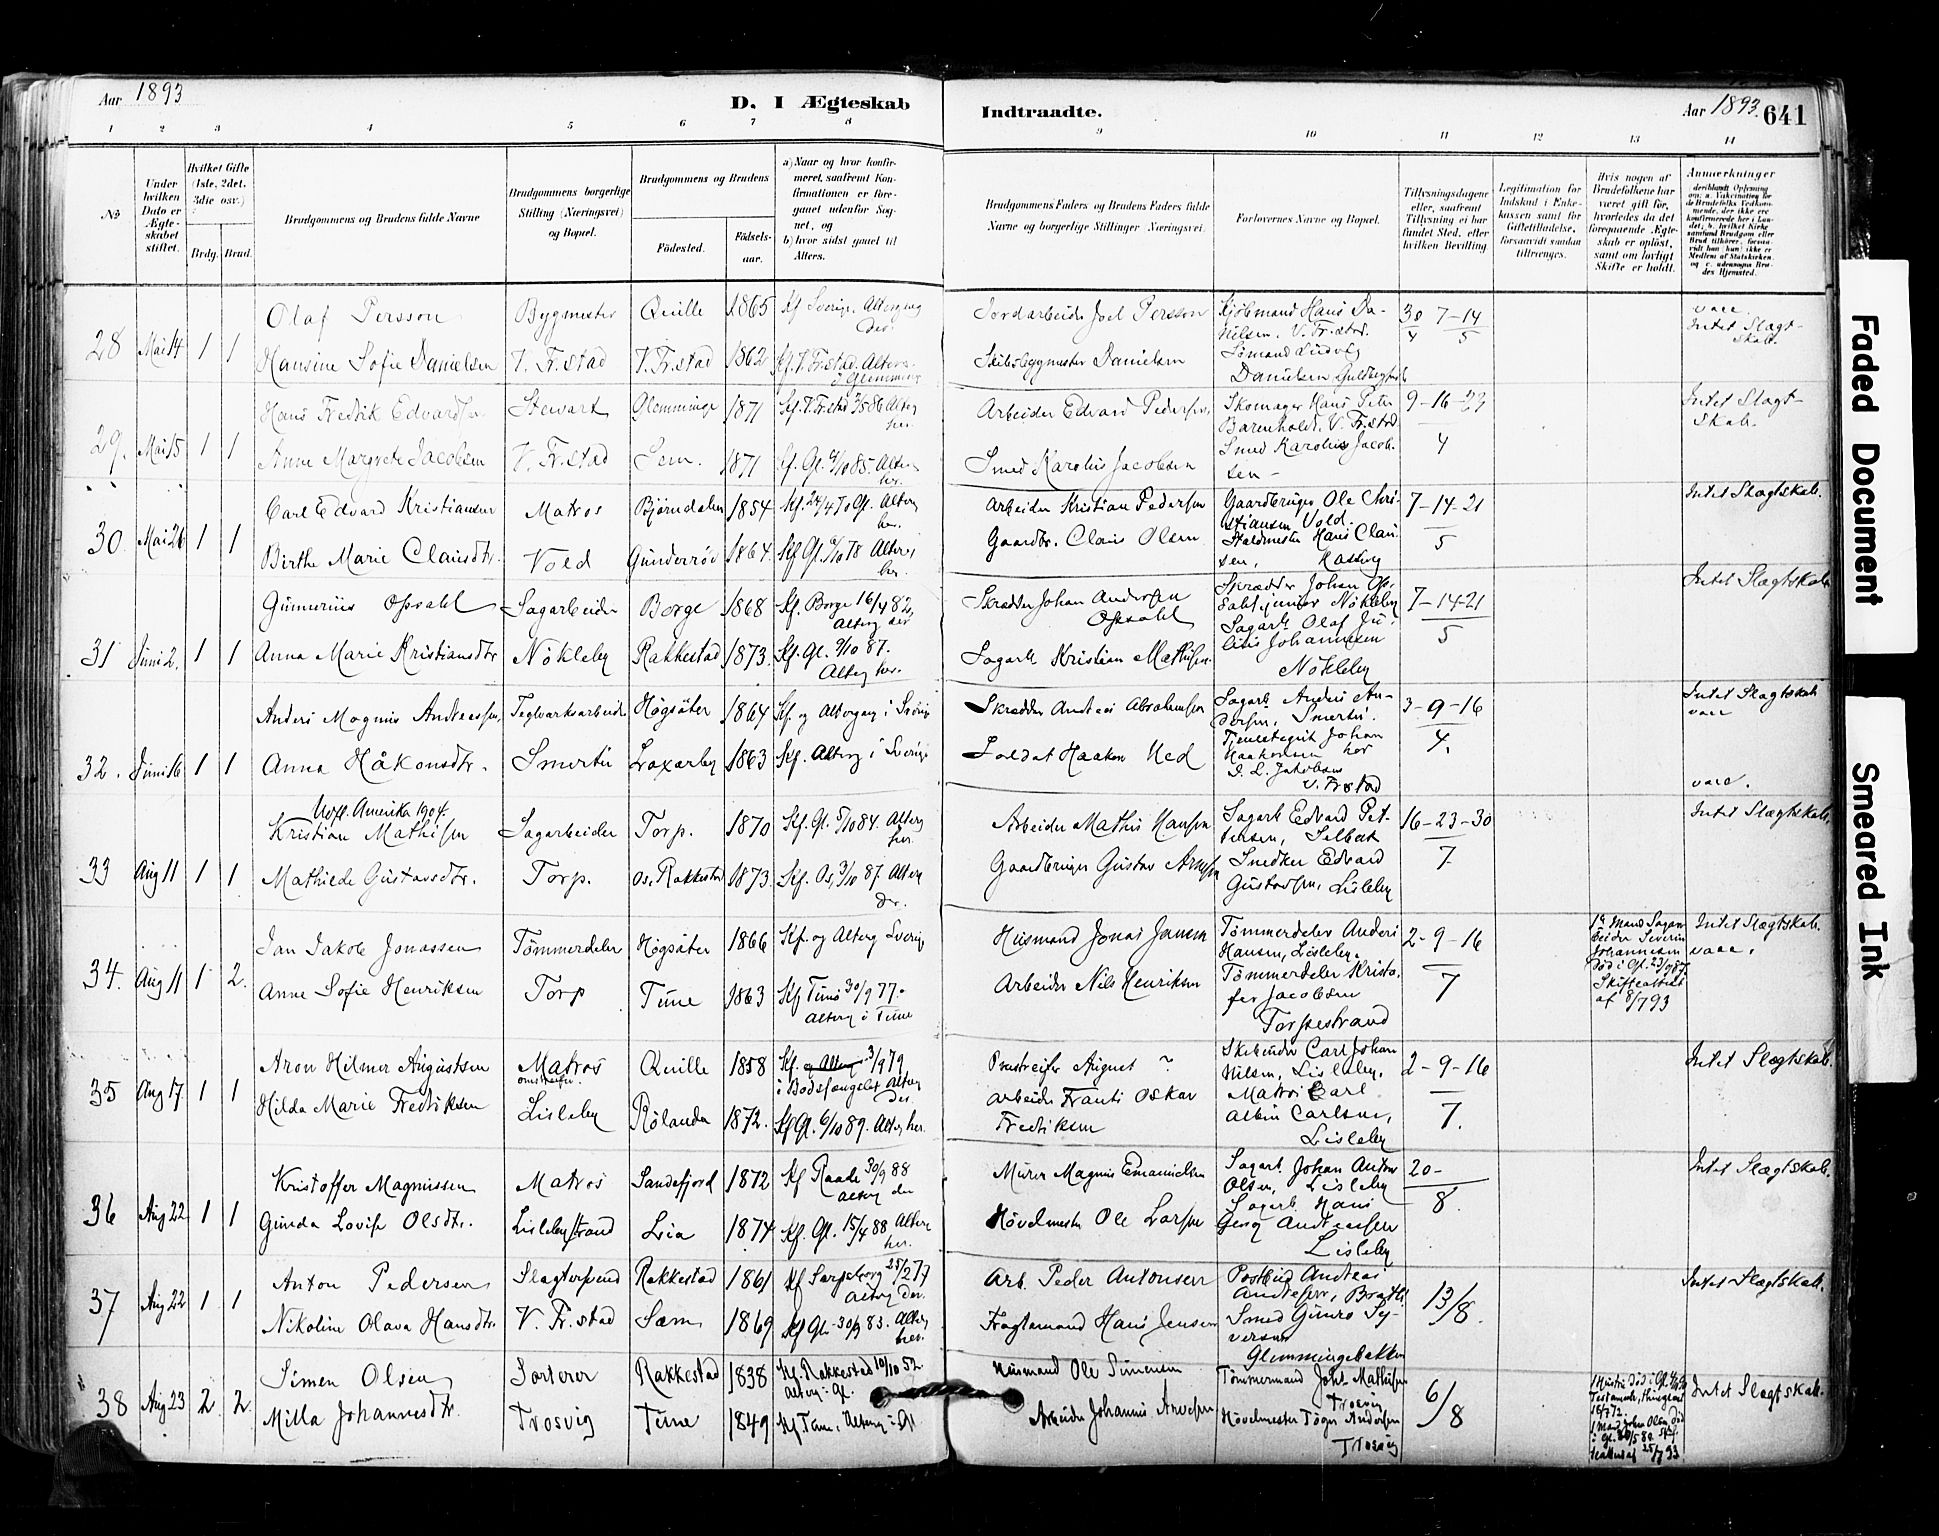 Aar 1893
D. I Ægteskab
Indtraadte.
Aar 1893. 641
1 2 3 4 5 6 7 8 9 10 11 12 13 14
No
Under hvilken Dato er Ægteskabet stiftet.
Hvilket Gifte (1ste, 2det, 3die osv.)
Brdg. Brud.
Brudgommens og Brudens fulde Navne
Brudgommens borgerlige Stilling (Næringsvei) og Bopæl.
Brudgommens og Brudens
Födested.
Födsels-aar.
a) Naar og hvor konfirmeret, saafremt Konfirmationen er foregaaet udenfor Sognet, og
b) hvor sidst gaaet til Alters.
Brudgommens Faders og Brudens Faders fulde Navne og borgerlige Stillinger Næringsvei.
Forlovernes Navne og Bopæl.
Tillysningsdagene eller, saafremt Tillysning ei har fundet Sted, efter hvilken Bevilling
Legitimation for Indskud i Enkekassen samt for Giftetilladelse, forsaavidt saadan tiltrænges.
Hvis nogen af Brudefolkene har været gift før, hvorledes da det foregaaende Ægteskab er oplöst, samt om lovligt Skifte er holdt.
Anmærkninger
28 Mai 14 1 1
Olaf Persson Bygmester Quille 1865 Kf Sverige. Alterg der
Jordarbeider Joel Persson Kjöbmand Hans Danielsen, V. Fr.stad. 30/4 7-14/5 Intet Slægtskab.
Hansine Sofie Danielsen V. Fr.stad V. Fr.stad 1862 Kf. V. Fr.stad. Alters i Glemminge
Skibsbygmester Danielsen Sömand Ludvig Danielsen
29. Mai 15 1 1
Hans Fredrik Edvardsen Stewart Glemminge 1871 Kf. V. Fr.stad Alterg her.
Arbeider Edvard Pedersen Skomager Hans Peter V. Fr.stad 9-16-23/4 Intet Slægtskab.
Anne Margrete Jacobsen V. Fr.stad Sem. 1871 Kf. Gl. 4/10 85. Alterg her.
Smed Karolius Jacobsen Smed Karolius Jacobsen
30. Mai 26 1 1
Carl Edvard Kristiansen Matros Björndalen 1854 Kf. 24/4 70 Gl. Alterg her.
Arbeider Kristian Pedersen Gaardbruger Ole Christiansen Vold. 7-14-21/5 Intet Slægtskab.
Birthe Marie Clausdtr. Vold Gunderröd 1864 Kf Gl. 6/10 78 Alters her.
Gaardbr. Claus Olsen Staldmester Hans Clausen,
31 Juni 2. 1 1
Gunnerius Opsahl Sagarbeider Borge 1868 Kf. Borge 16/4 82, Alterg der
Skrædder Johan Andersen Opsahl Skrædder Johan Opsahl junior Nökleby 7-14-21/5 Intet Slægtskab
Anna Marie Kristiansdtr Nökleby Rakkestad 1873. Kf. Gl. 9/10 87. Alterg her.
Sagarb Kristian Mathisen. Sagarb. Olaf Julius Johannesen Nökleby
32. Juni 16 1 1
Anders Magnus Andreassen Teglværksarbeid. Högsäter 1864 Kf. og Altergang i Sverige
Skrædder Andreas Abrahamsen Sagarb Anders Andersen, Smertu. 3-9-16/4. Intet Slægtskab
Anna Håkonsdtr. Smertu Laxarby 1863 Kf. Alterg i Sverige
Soldat Haakon Ned Tjenestegut Johan Haakonsen hos J. L. Jakobsen V. Fr.stad
33 Aug 11 1 1
Udfl. Amerika 1904.
Kristian Mathisen Sagarbeider Torp. 1870 Kf. Gl. 5/10 84. Alterg her.
Arbeider Mathis Hansen Sagarb Edvard Pettersen, Selbak 16-23-30/7 Intet Slægtskab.
Mathilde Gustavsdtr. Torp. Os, Rakkestad 1873. Kf. Os, 3/10 87. Alterg der.
Gaardbruger Gustav Arnesen Snedker Edvard Gustavsen, Lisleby
34. Aug 11 1 2.
Jan Jakob Jonassen Tömmerdeler Högsäter 1866 Kf. og Alterg Sverig
Husmand Jonas Jansen Tömmerdeler Anders Hansen, Lisleby. 2-9-16/7
1ste Mand Sagarbeider Severin Johannesen död i Gl. 23/9 87. Skifteattest af 8/7 93
Intet Slægtskab.
Anne Sofie Henriksen Torp Tune 1863 Kf Tune 30/9 77. Alterg i Tune
Arbeider Nils Henriksen Tömmerdeler Kristofer Jacobsen Torpestrand
35 Aug 17. 1 1
Aron Hilmer Augustsen Matros omstreifer Quille 1858 Kf. 3/9 79 i Bodsfængslet Alterg der.
Omstreifer August ? Carl Johan Nilsen, Lisleby, 2-9-16/7. Intet Slægtskab.
Hilda Marie Fredriksen Lisleby Rölanda 1872. Kf Gl. 6/10 89. Alterg her.
Arbeider Frants Oskar Fredriksen Matros Carl Albin Carlsen, Lisleby
36 Aug 22 1 1
Kristoffer Magnussen Matros Sandefjord 1872 Kf Raade 30/9 88 Alterg der
Murer Magnus Emanuelsen Sagarb. Johan Anton Olsen, Lisleby 20-/8. Intet Slægtskab.
Gunda Lovise Olsdtr. Lislebystrand Lia 1874 Kf. Gl. 15/4 88 Alterg her.
Hövelmester Ole Larsen Sagarb Hans Georg Andreassen Lisleby
37 Aug 22 1 1
Anton Pedersen Slagtersvend Rakkestad 1861 Kf Sarpsborg 25/2 77 Alterg der.
Arb. Peder Antonsen Postbud Andreas Andresen, 13/8. Intet Slægtskab.
Nikoline Olava Hansdtr. V. Fr.stad Sæm 1869 Kf Gl. 30/9 83. Alterg her.
Fragtemand Hans Jensen Smed Gunro Syversen Glemmingebakken
38 Aug 23 2. 2.
Simen Olsen Sorterer Rakkestad 1838 Kf. Rakkestad 10/10 52. Alterg i Gl.
Husmand Ole Simensen Tömmermand Joh. Mathisen Trosvig 6/8 Intet Slægtskab.
Milla Johannesdtr. Trosvig Tune 1849 Kf Tune, Alterg i Gl
Arbeider Johannes Arvesen Hövelmester Töger Andersen Trosvig
Faded Document
Smeared Ink